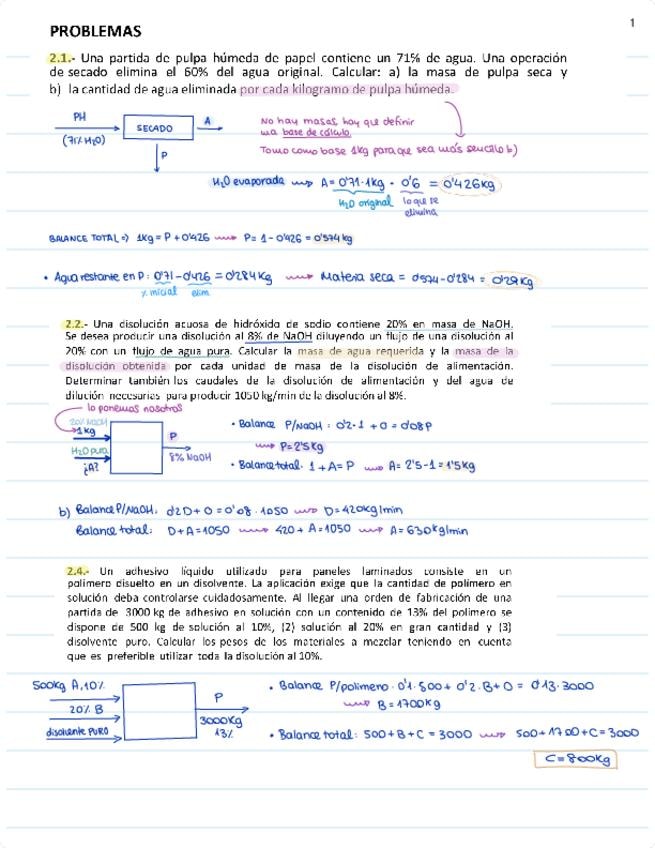 1
PROBLEMAS
2.1.- Una partida de pulpa húmeda de papel contiene un 71% de agua. Una operación
de secado elimina el 60% del agua original. Calcular: a) la masa de pulpa seca y
b) la cantidad de agua eliminada por cada kilogramo de pulpa húmeda.
PH
(71% H₂O)
SECADO
A
P
No hay masas, hay que definir
una base de cálculo.
Tomo como base 1kg para que sea más sencillo b)
H₂O evaporada ⟿ A= 0'71·1kg · 0'6 = 0'426kg
H₂O original lo que se
elimina
BALANCE TOTAL => 1kg = P + 0'426 ⟿ P= 1 - 0'426 = 0'574 kg
• Agua restante en P: 0'71-0'426 = 0'284 kg ⟿ Materia seca = 0'574-0'284 = 0'29kg
% inicial elim
2.2.- Una disolución acuosa de hidróxido de sodio contiene 20% en masa de NaOH.
Se desea producir una disolución al 8% de NaOH diluyendo un flujo de una disolución al
20% con un flujo de agua pura. Calcular la masa de agua requerida y la masa de la
disolución obtenida por cada unidad de masa de la disolución de alimentación.
Determinar también los caudales de la disolución de alimentación y del agua de
dilución necesarias para producir 1050 kg/min de la disolución al 8%.
lo ponemos nosotros
20% NaOH
1kg
H₂O pura
¿A?
P
8% NaOH
• Balance P/NaOH : 0'2·1 + 0 = 0'08P
⟿ P=2'5kg
• Balance total: 1+A=P ⟿ A= 2'5-1=1'5kg
b) Balance P/NaOH: 0'2D+0=0'08·1050 ⟿ D=420kg/min
Balance total: D+A=1050 ⟿ 420+A=1050 ⟿ A=630kg/min
2.4.- Un adhesivo líquido utilizado para paneles laminados consiste en un
polímero disuelto en un disolvente. La aplicación exige que la cantidad de polímero en
solución deba controlarse cuidadosamente. Al llegar una orden de fabricación de una
partida de 3000 kg de adhesivo en solución con un contenido de 13% del polímero se
dispone de 500 kg de solución al 10%, (2) solución al 20% en gran cantidad y (3)
disolvente puro. Calcular los pesos de los materiales a mezclar teniendo en cuenta
que es preferible utilizar toda la disolución al 10%.
500kg A,10%
20% B
disolvente PURO
P
3000kg
13%
• Balance P/polímero: 0'1·500+0'2·B+0 = 0'13·3000
⟿ B=1700kg
• Balance total: 500+B+C=3000 ⟿ 500+1700+C=3000
C=800kg